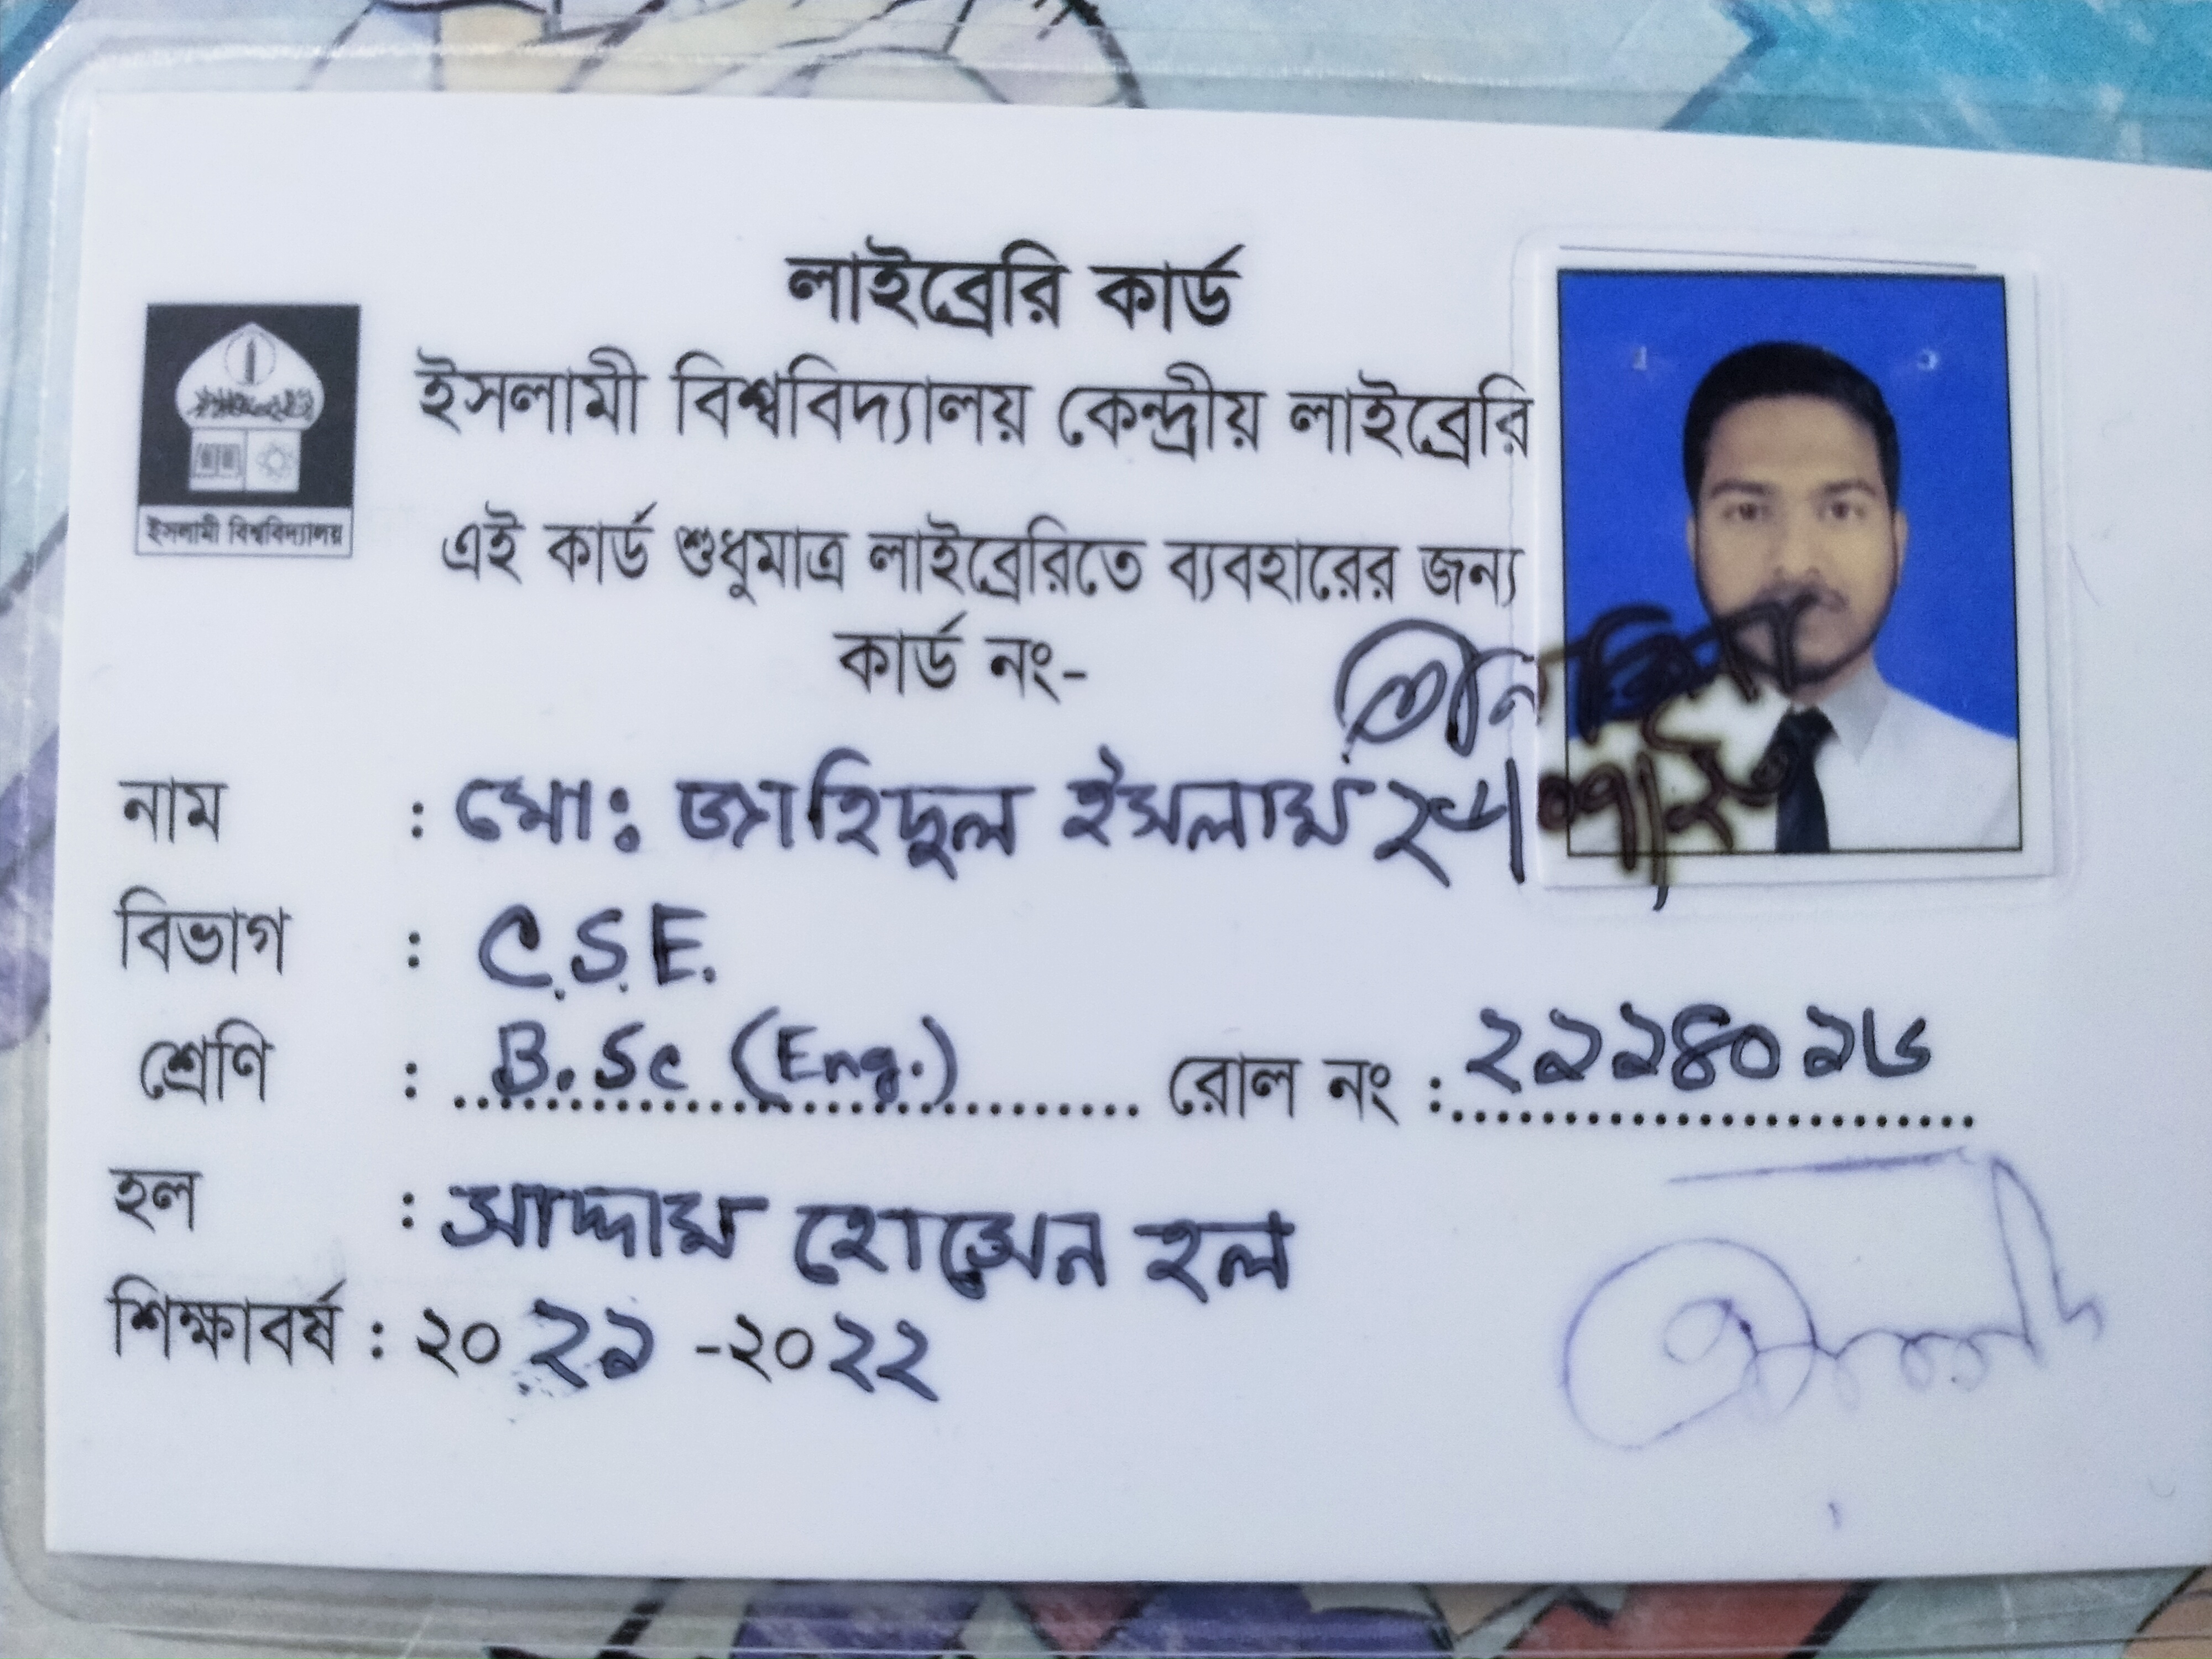 লাইব্রেরি কার্ড
ইসলামী বিশ্ববিদ্যালয় কেন্দ্রীয় লাইব্রেরি
ইসলামী বিশ্ববিদ্যালয়
এই কার্ড শুধুমাত্র লাইব্রেরিতে ব্যবহারের জন্য
কার্ড নং-
নাম : মো: জাহিদুল ইসলাম
বিভাগ : C.S.E.
শ্রেণি : B.Sc (Eng.) রোল নং : ২১১৪০১৬
হল : সাদ্দাম হোসেন হল
শিক্ষাবর্ষ : ২০২১ -২০২২